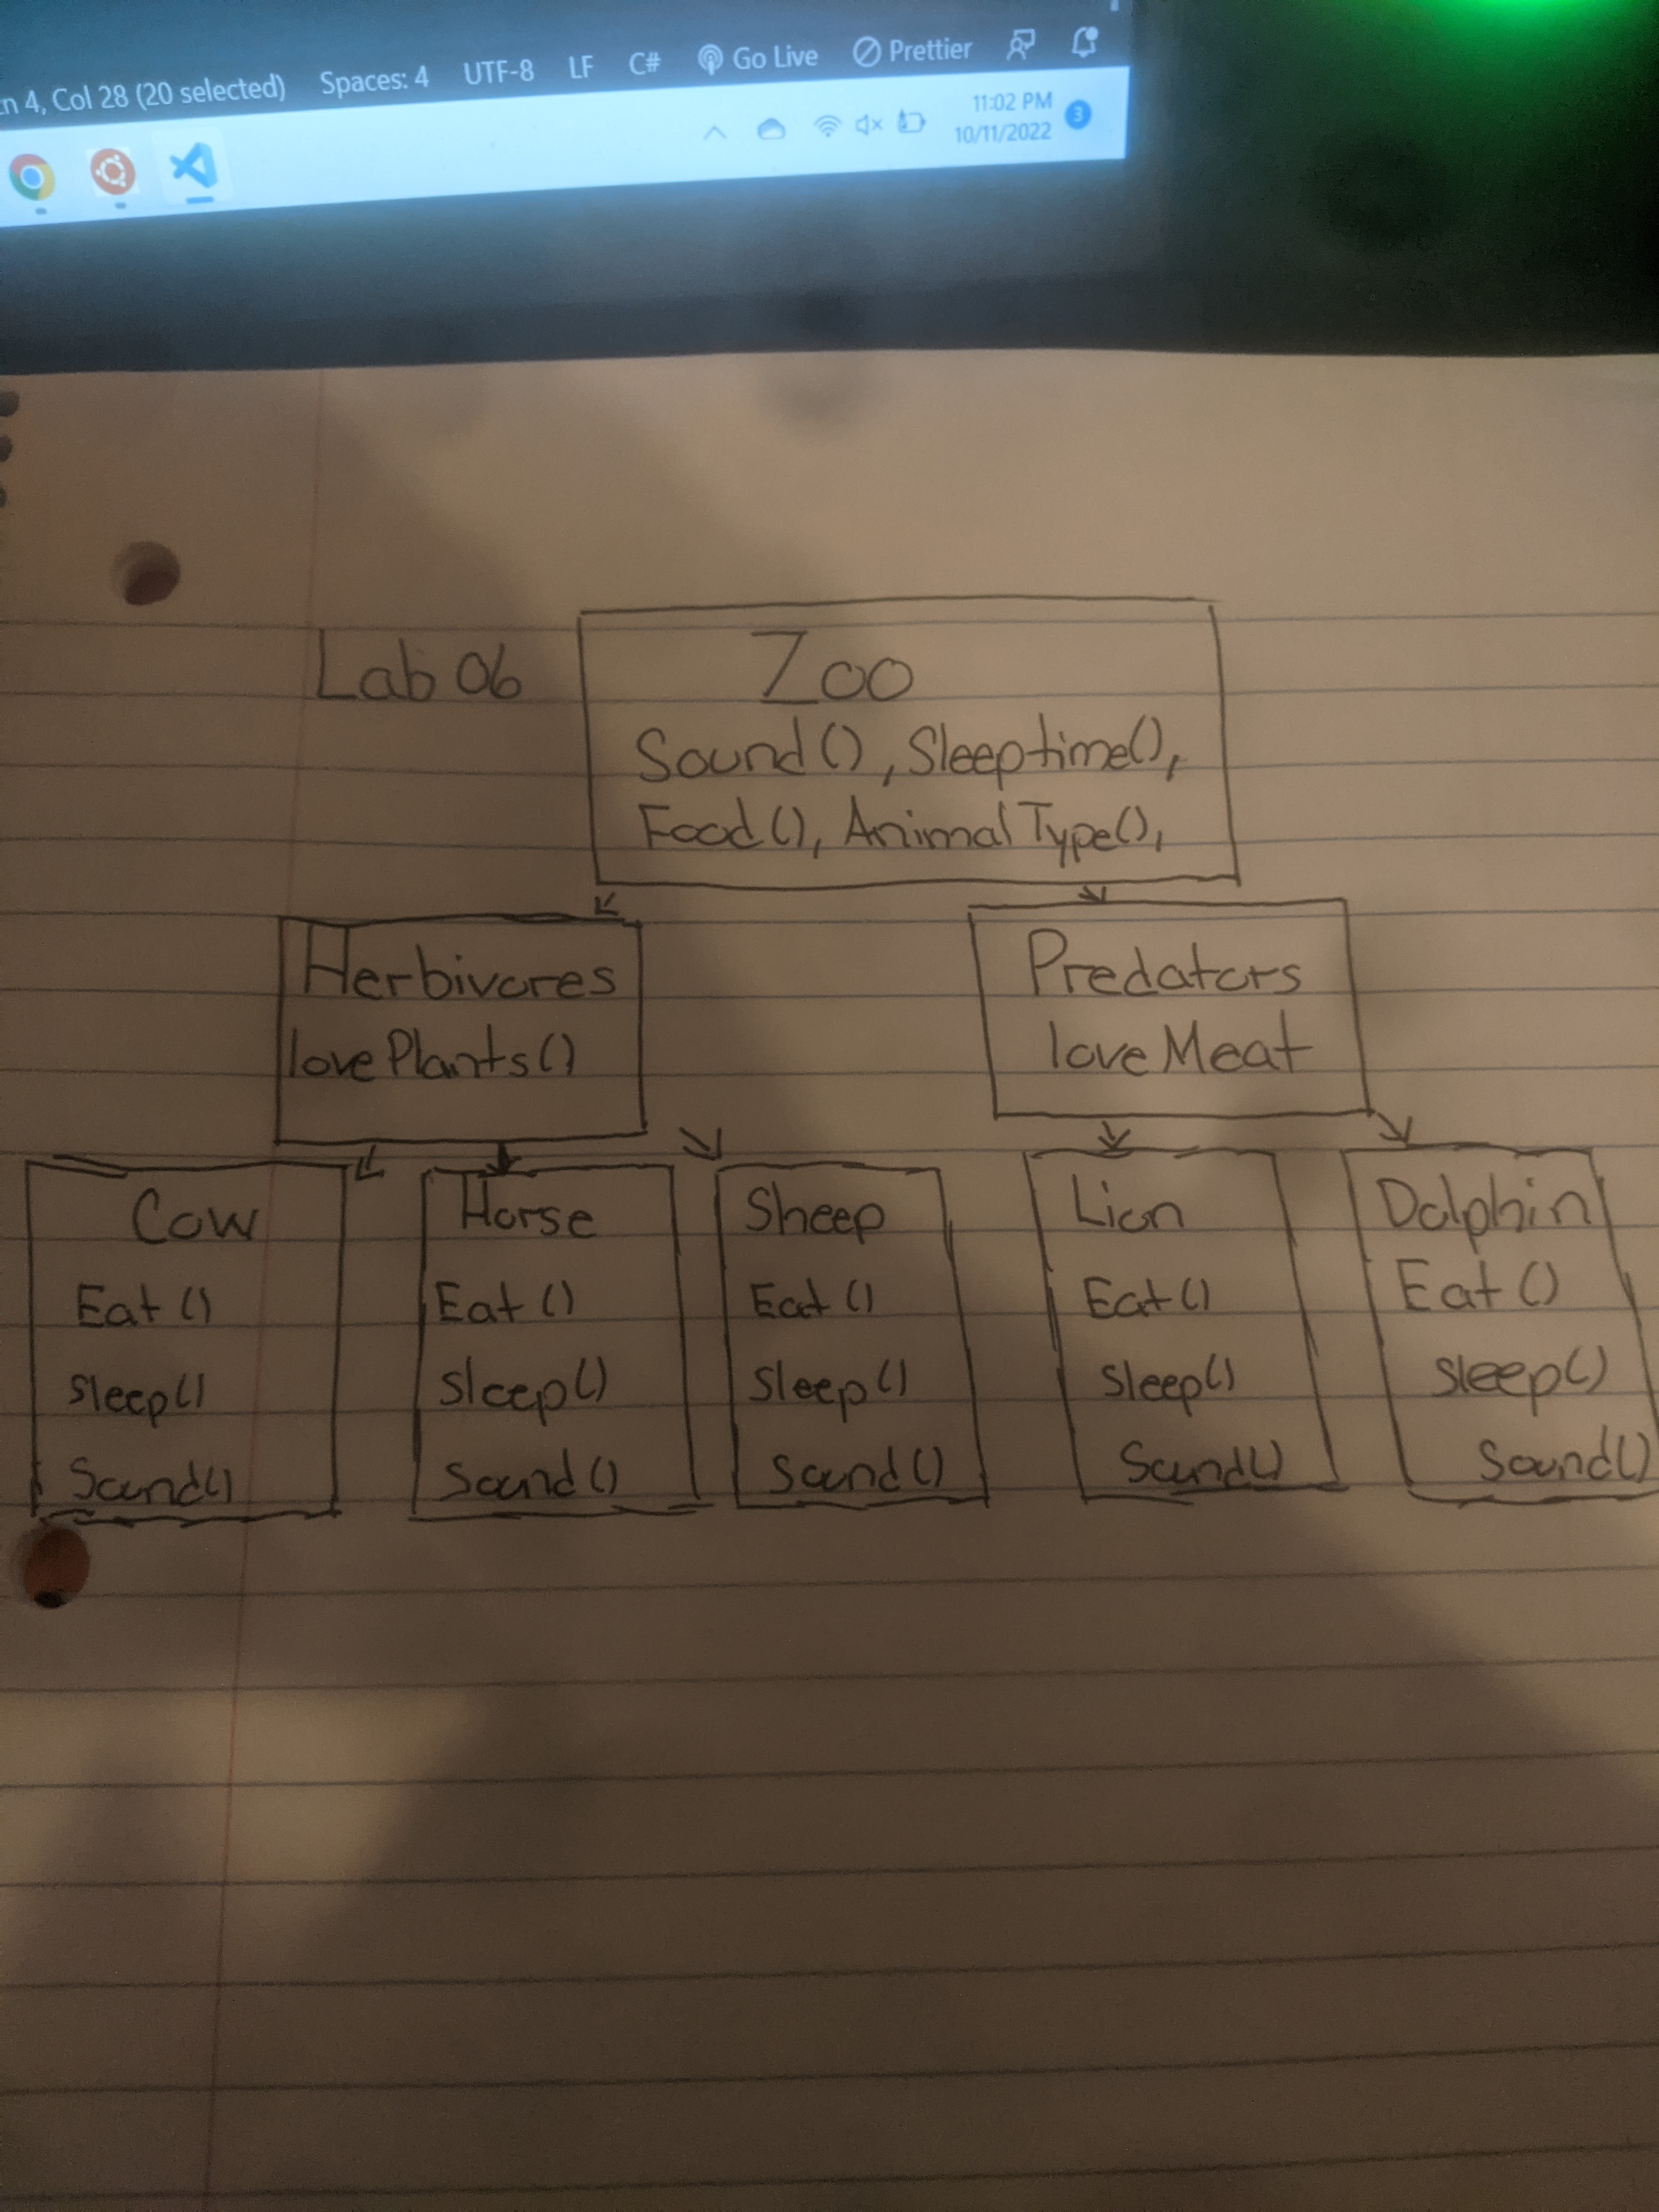 Ln 4, Col 28 (20 selected) Spaces: 4 UTF-8 LF C# Go Live Prettier
11:02 PM
10/11/2022
3
Lab 06
Zoo
Sound(), Sleeptime(),
Food(), AnimalType(),
Herbivores
lovePlants()
Predators
loveMeat
Cow
Eat()
Sleep()
Sound()
Horse
Eat()
Sleep()
Sound()
Sheep
Eat()
Sleep()
Sound()
Lion
Eat()
Sleep()
Sound()
Dolphin
Eat()
Sleep()
Sound()